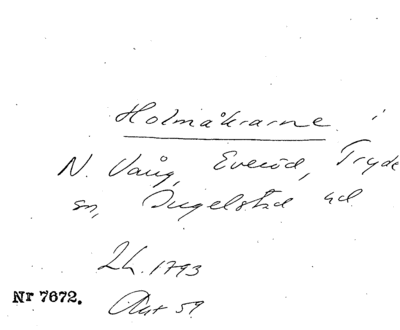 Holmåkrarne i
N. Vång, Everöd, Tryde
sn, Ingelstad hd
Lh. 1793
Nr 7672. Akt 59